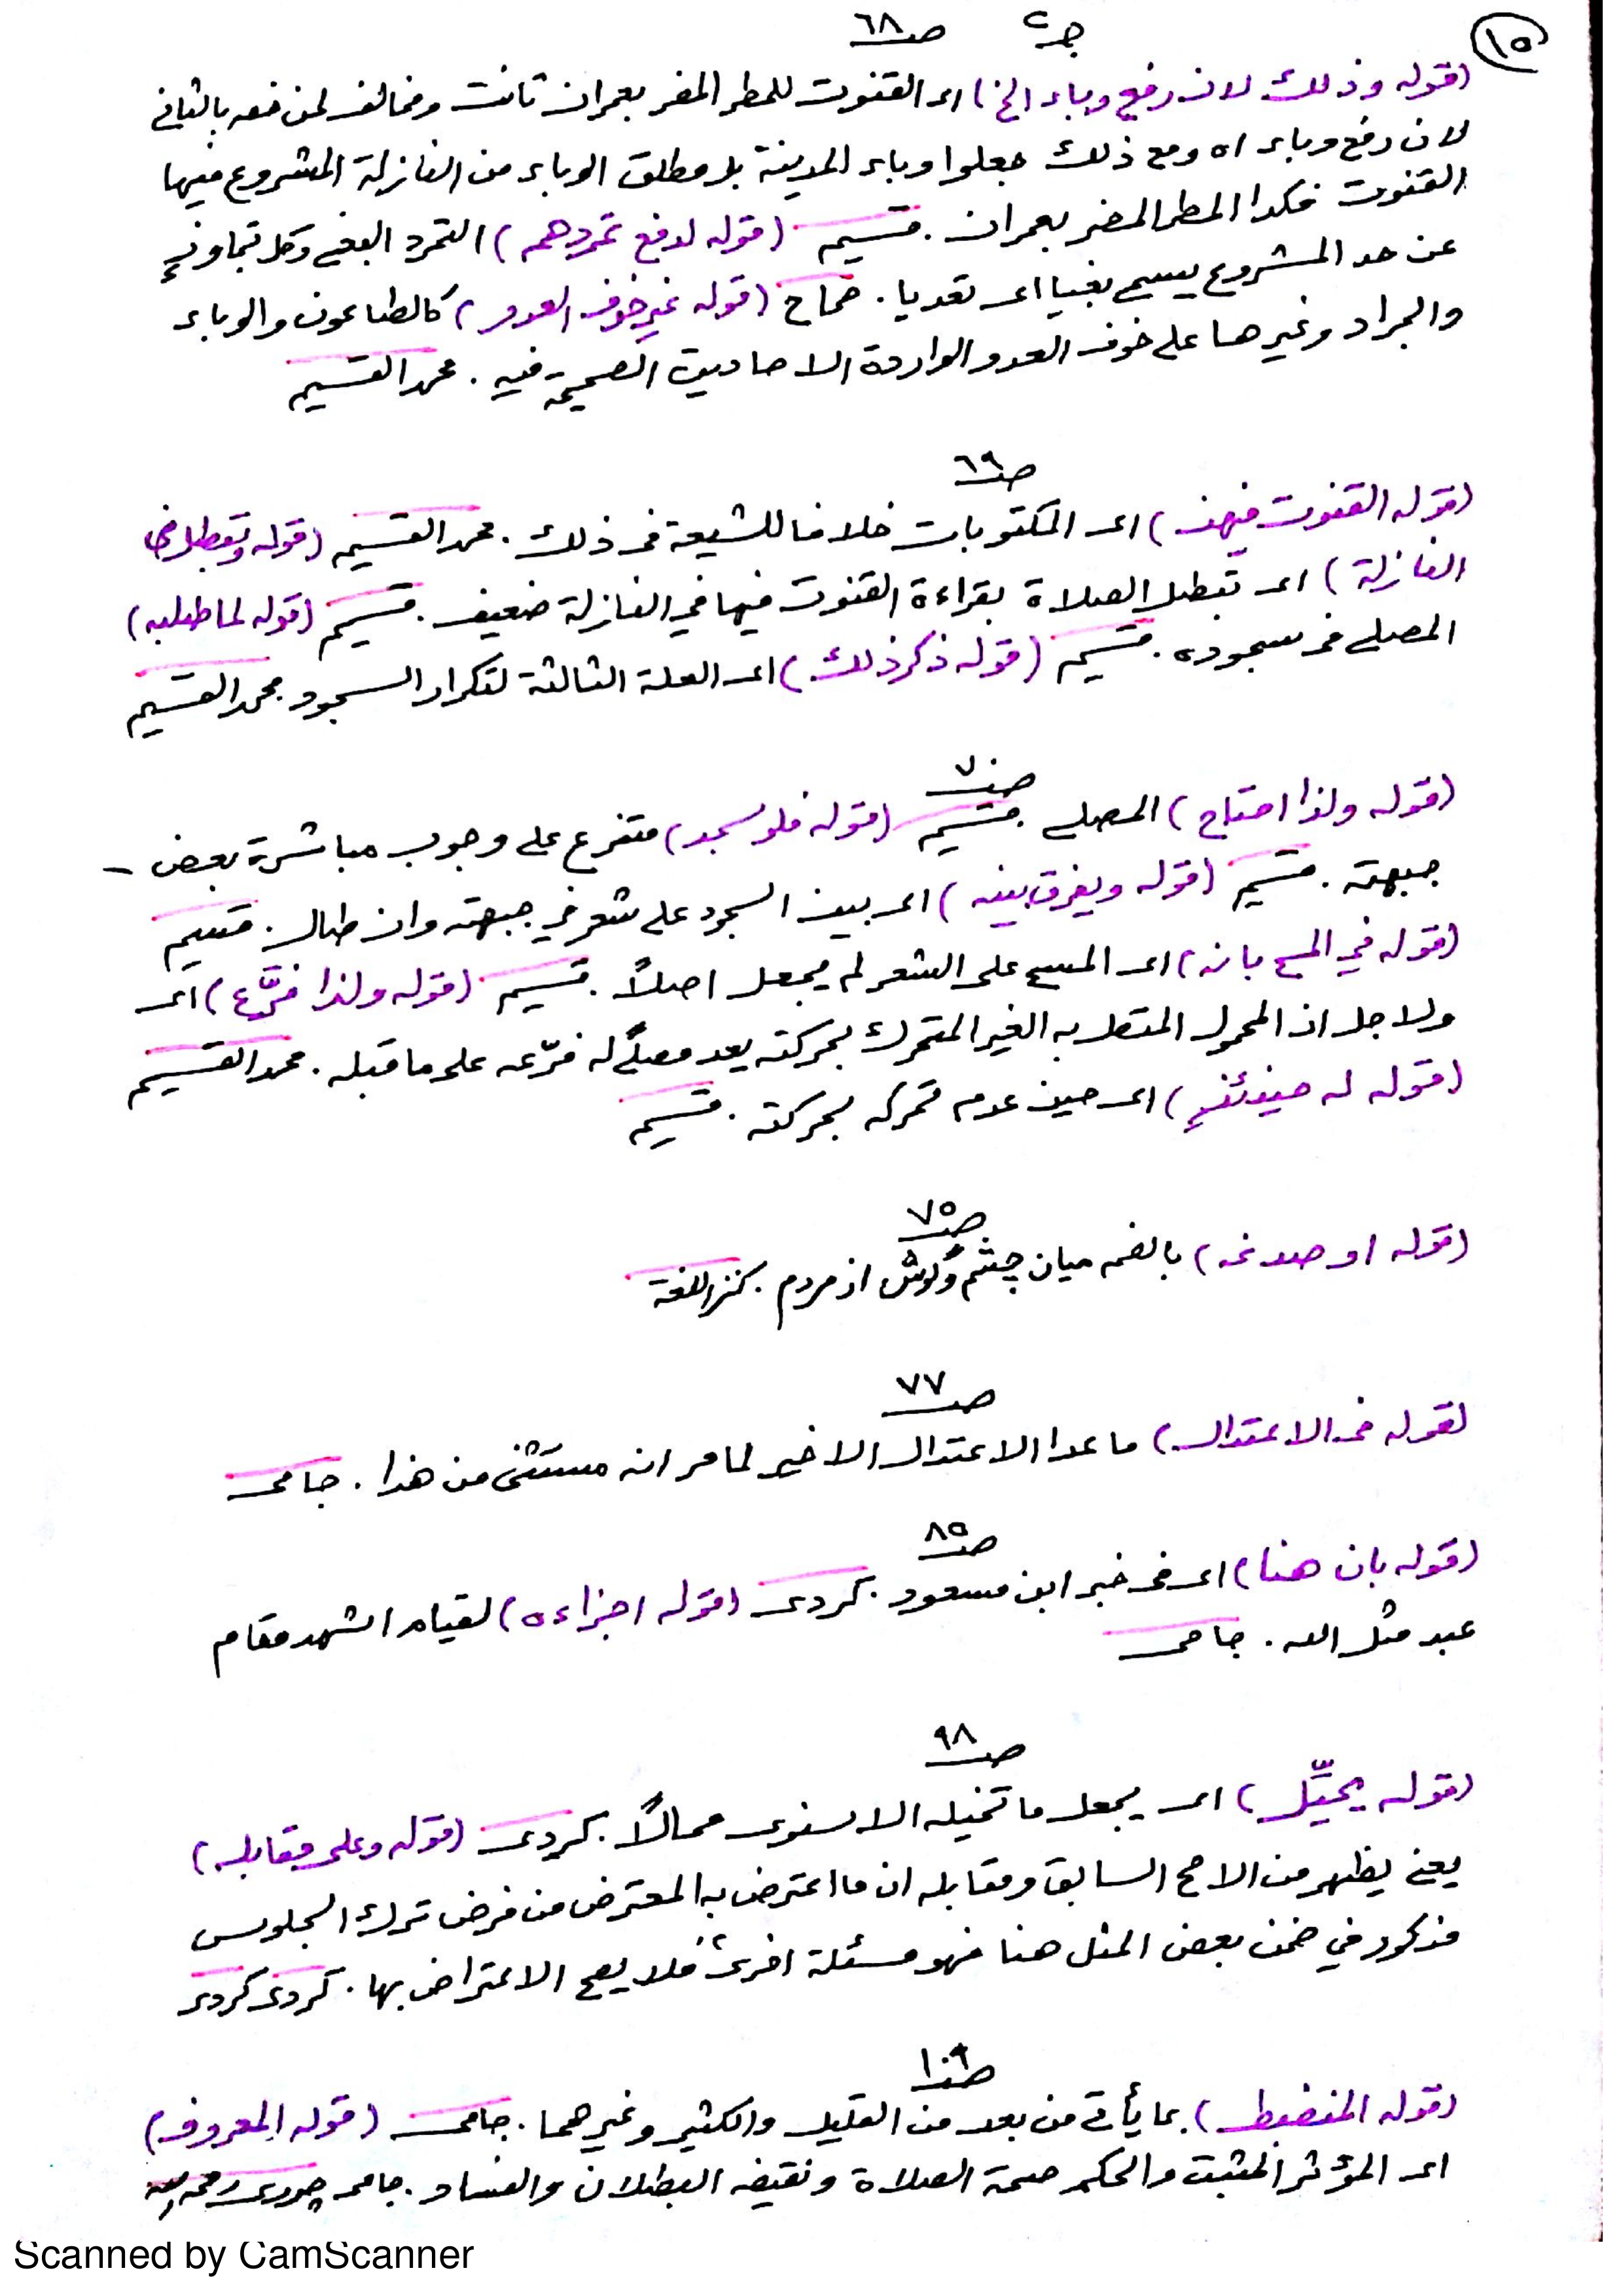 ١٥
جـ٢ صـ٦٨
(قوله وذلك لان رفع وباء الخ) اى القنوت للمطر المضر بعمران ثابت ومخالف لمن خصه بالثانى
لان رفع وباء اه ومع ذلك جعلوا وباء المدينة بل مطلق الوباء من النازلة المشروع فيها
القنوت فكذا المطر المضر بعمران. قسيم (قوله لدفع تمردهم) التمرد البغى وكل تجاوز
عن حد المشروع يسمى بغيا اى تعديا. صحاح (قوله غير خوف العدو) كالطاعون والوباء
والجراد وغيرها على خوف العدو الواردة الاحاديث الصحيحة فيه. محمد القسيم
صـ٦٩
(قوله القنوت فيهن) اى المكتوبات خلافا للشيعة فى ذلك. محمد القسيم (قوله وتبطل فى
النازلة) اى تبطل الصلاة بقراءة القنوت فيها في النازلة ضعيف. قسيم (قوله لما طلبه)
المصلى فى سجوده. قسيم (قوله ذكر ذلك) اى العلة الثالثة لتكرار السجود. محمد القسيم
صـ٧٠
(قوله ولذا احتاج) المصلى. قسيم (قوله فلو سجد) متفرع على وجوب مباشرة بعض
جبهته. قسيم (قوله ويفرق بينه) اى بين السجود على شعر في جبهته وان طال. قسيم
(قوله في المسح بانه) اى المسح على الشعر لم يجعل اصلاً. قسيم (قوله ولذا فرَّع) اى
ولاجل ان المحمول المتصل به الغير المتحرك بحركته يعد مصلًّى له فرّعه على ما قبله. محمد القسيم
(قوله له حينئذٍ) اى حين عدم تحركه بحركته. قسيم
صـ٧٥
(قوله او صدغه) بالضم ميان چشم وگوش از مردم. كنز اللغة
صـ٧٧
(قوله فى الاعتدال) ما عدا الاعتدال الاخير لما مر انه مستثنى من هذا. جامى
صـ٨٥
(قوله بان هنا) اى فى خبر ابن مسعود. كردى (قوله اجزاءه) لقيام الشهد مقام
عبد مثل الله. جامى
صـ٩٨
(قوله يحيِّل) اى يجعل ما تخيله الاسنوى محالاً. كردى (قوله وعلى مقابله)
يعنى يظهر من الاصح السابق ومقابله ان ما اعترض به المعترض من فرض ترك الجلوس
مذكور في ضمن بعض المثل هنا فهو مسئلة اخرى فلا يصح الاعتراض بها. كردى كردى
صـ١٠٦
(قوله المنضبط) بما يأتى من بعد من القليل والكثير وغيرهما. جامى (قوله المعروف)
اى المؤثر المثبت والحكم صحة الصلاة ونقيضه البطلان والفساد. جامى چورى رحمه الله
Scanned by CamScanner